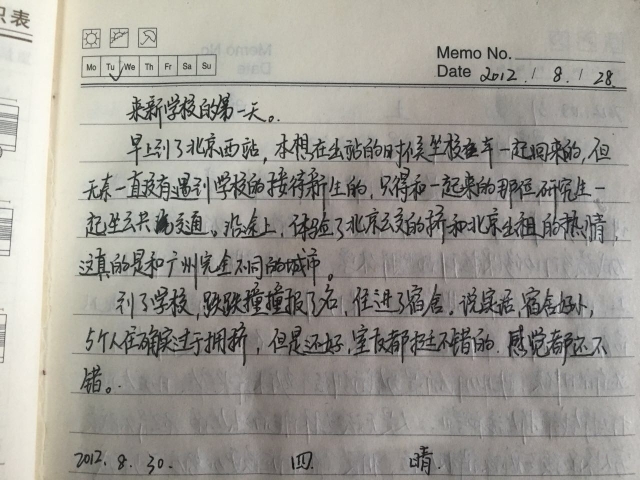 识表
Memo No.
Mo Tu We Th Fr Sa Su
Date 2012 / 8 / 28.
来新学校的第一天。
早上到了北京西站，本想在出站的时候坐校车一起回来的，但
无奈一直没有遇到学校的接待新生的，只得和一起来的那位研究生一
起坐公共交通。沿途上，体验了北京公交的挤和北京出租的热情，
这真的是和广州完全不同的城市。
到了学校，跌跌撞撞报了名，住进了宿舍。说实话，宿舍好小，
5个人住确实过于拥挤，但是还好，室友都挺不错的，感觉都还不
错。
2012. 8. 30. 四 晴.